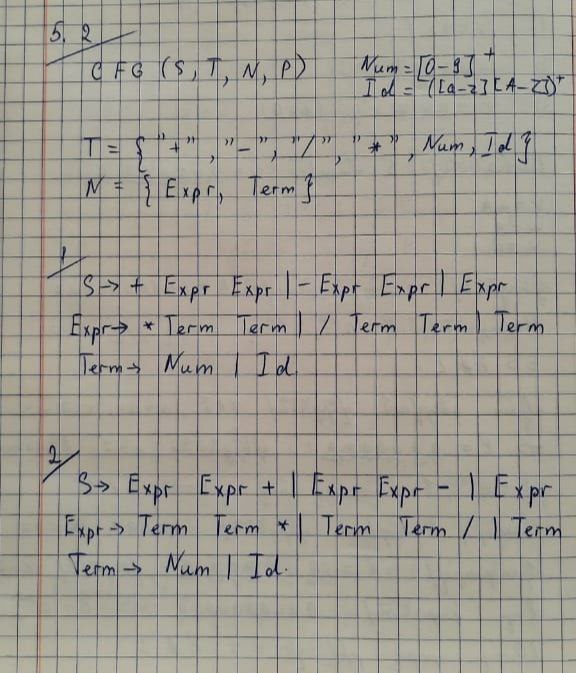 5. 2
CFG (S, T, N, P)
Num = [0-9]⁺
Id = ([a-z][A-Z])⁺
T = { "+", "-", "/", "*", Num, Id }
N = { Expr, Term }
1
S → + Expr Expr | - Expr Expr | Expr
Expr → * Term Term | / Term Term | Term
Term → Num | Id.
2
S → Expr Expr + | Expr Expr - | Expr
Expr → Term Term * | Term Term / | Term
Term → Num | Id.